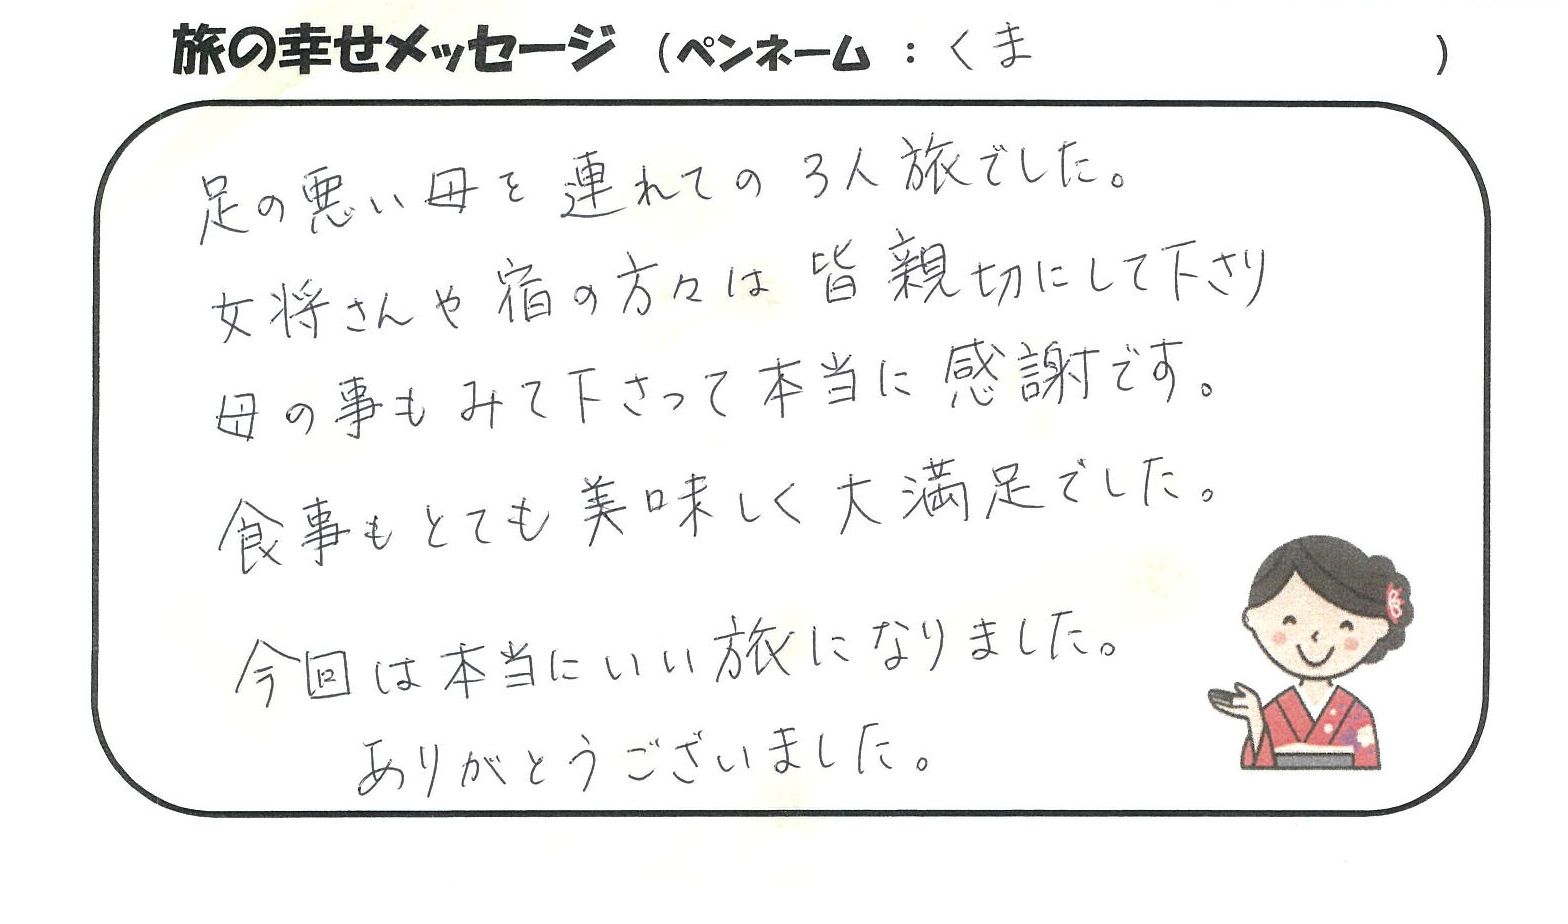 旅の幸せメッセージ (ペンネーム : くま )
足の悪い母を連れての3人旅でした。
女将さんや宿の方々は皆親切にして下さり
母の事もみて下さって本当に感謝です。
食事もとても美味しく大満足でした。
今回は本当にいい旅になりました。
ありがとうございました。